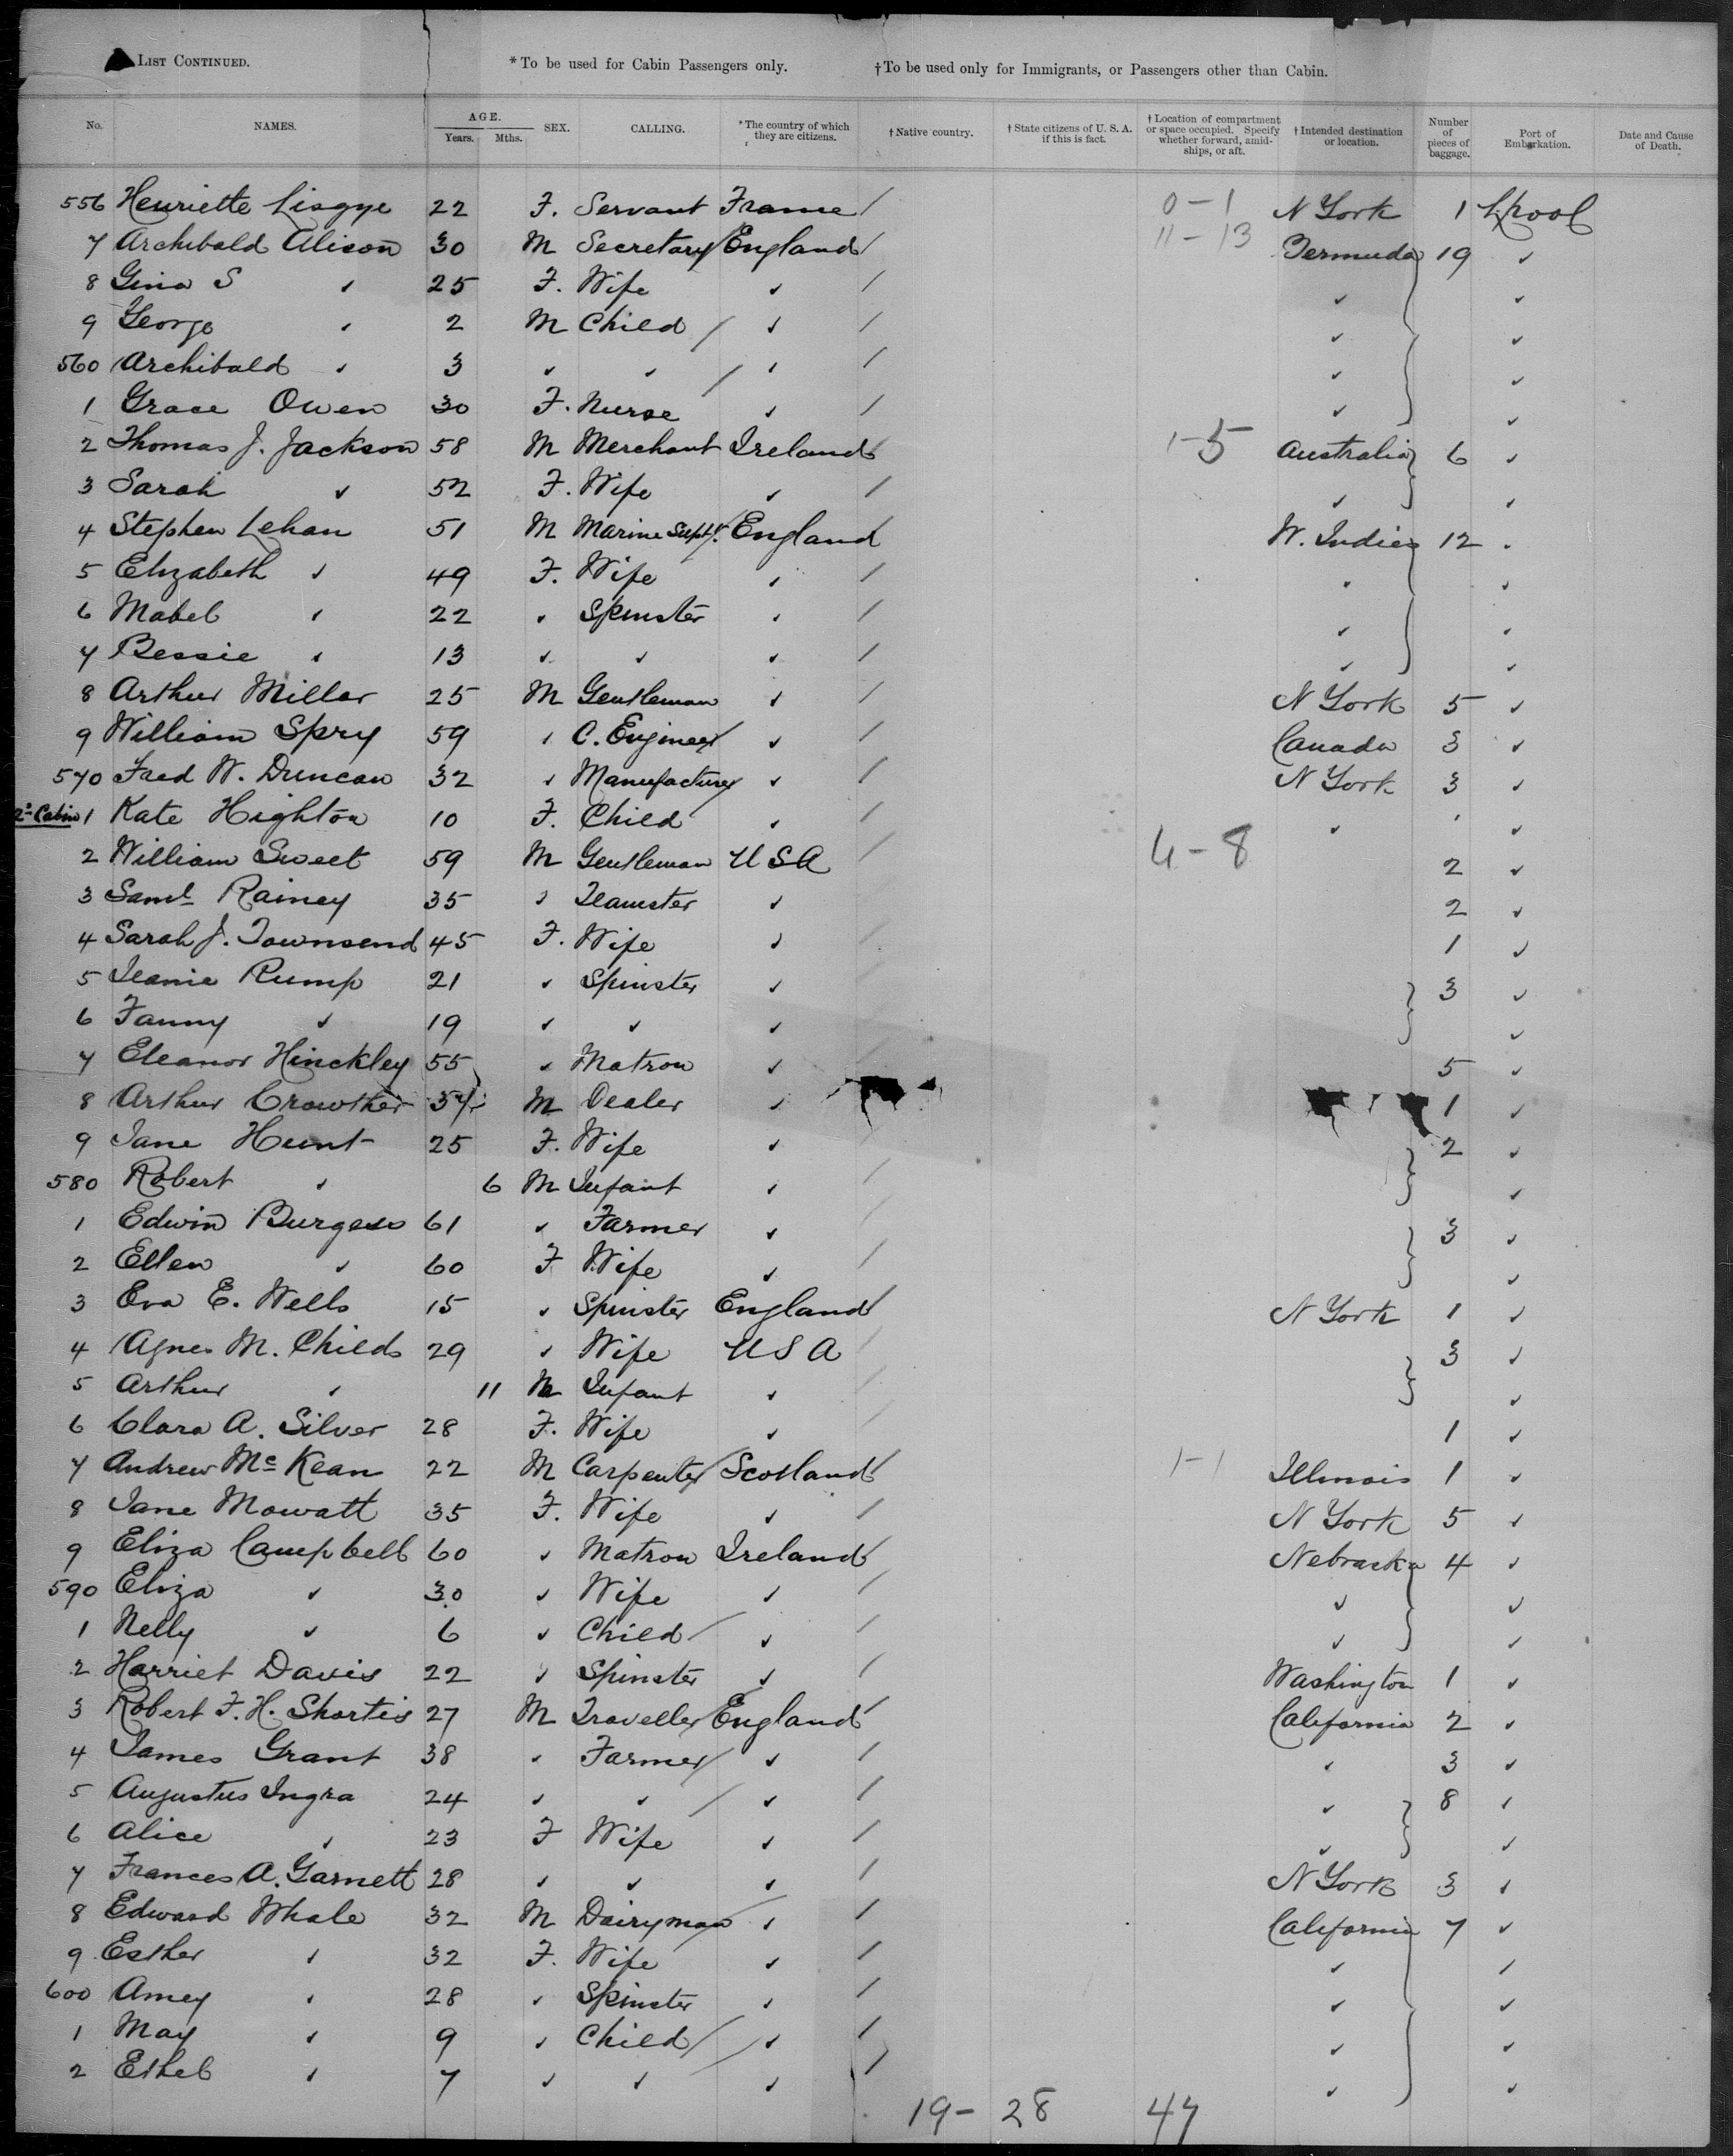 LIST CONTINUED. *To be used for Cabin Passengers only. †To be used only for Immigrants, or Passengers other than Cabin.
No. NAMES. AGE. Years. Mths. SEX. CALLING. *The country of which they are citizens. †Native country. †State citizens of U. S. A. if this is fact. †Location of compartment or space occupied. Specify whether forward, amidships, or aft. †Intended destination or location. Number of pieces of baggage. Port of Embarkation. Date and Cause of Death.
556 Henriette 22 F. Servant France / 0-1 N York 1 L'pool
7 Archibald Alison 30 M Secretary England / 11-13 Bermuda 19 ✓
8 Gina S ✓ 25 F. Wife ✓ / ✓ ✓
9 George ✓ 2 M Child / ✓ / ✓ ✓
560 Archibald ✓ 3 ✓ ✓ / ✓ / ✓ ✓
1 Grace Owen 30 F. Nurse ✓ / ✓ ✓
2 Thomas J. Jackson 58 M Merchant Ireland / 1-5 Australia 6 ✓
3 Sarah ✓ 52 F. Wife ✓ / ✓ ✓
4 Stephen Lehan 51 M Marine Supt. England W. Indies 12 ✓
5 Elizabeth ✓ 49 F. Wife ✓ / ✓ ✓
6 Mabel ✓ 22 ✓ Spinster ✓ / ✓ ✓
7 Bessie ✓ 13 ✓ ✓ ✓ / ✓ ✓
8 Arthur Millar 25 M Gentleman ✓ / N York 5 ✓
9 William Spry 59 ✓ C. Engineer ✓ / Canada 3 ✓
570 Fred W. Duncan 32 ✓ Manufacturer ✓ / N York 3 ✓
2nd Cabin 1 Kate Highton 10 F. Child ✓ / ✓ ✓ ✓
2 William Sweet 59 M Gentleman USA / 4-8 2 ✓
3 Saml. Rainey 35 ✓ Teamster ✓ 2 ✓
4 Sarah J. Townsend 45 F. Wife ✓ / 1 ✓
5 Jeanie Rump 21 ✓ Spinster ✓ 3 ✓
6 Fanny ✓ 19 ✓ ✓ ✓ ✓
7 Eleanor Hinckley 55 ✓ Matron ✓ 5 ✓
8 Arthur Crowther M Dealer ✓ 1 ✓
9 Jane Hunt 25 F. Wife ✓ 2 ✓
580 Robert ✓ 6 M Infant ✓ / ✓
1 Edwin Burgess 61 ✓ Farmer ✓ / 3 ✓
2 Ellen ✓ 60 F Wife ✓ / ✓
3 Eva E. Wells 15 ✓ Spinster England / N York 1 ✓
4 Agnes M. Childs 29 ✓ Wife USA / 3 ✓
5 Arthur ✓ 11 M Infant ✓ / ✓
6 Clara A. Silver 28 F. Wife ✓ / 1 ✓
7 Andrew McKean 22 M Carpenter Scotland / 1-1 Illinois 1 ✓
8 Jane Mowatt 35 F. Wife ✓ / N York 5 ✓
9 Eliza Campbell 60 ✓ Matron Ireland / Nebraska 4 ✓
590 Eliza ✓ 30 ✓ Wife ✓ / ✓ ✓
1 Nelly ✓ 6 ✓ Child / ✓ / ✓ ✓
2 Harriet Davis 22 ✓ Spinster ✓ / Washington 1 ✓
3 Robert F. H. Shortis 27 M Traveller England / California 2 ✓
4 James Grant 38 ✓ Farmer / ✓ / ✓ 3 ✓
5 Augustus Ingra 24 ✓ ✓ / ✓ / ✓ 8 ✓
6 Alice ✓ 23 F Wife ✓ / ✓ ✓
7 Frances A. Garnett 28 ✓ ✓ ✓ / N York 3 ✓
8 Edward Whale 32 M Dairyman ✓ / California 7 ✓
9 Esther ✓ 32 F. Wife ✓ / ✓ ✓
600 Amey ✓ 28 ✓ Spinster ✓ / ✓ ✓
1 May ✓ 9 ✓ Child / ✓ / ✓ ✓
2 Ethel ✓ 7 ✓ ✓ ✓ / ✓ ✓
19- 28 47